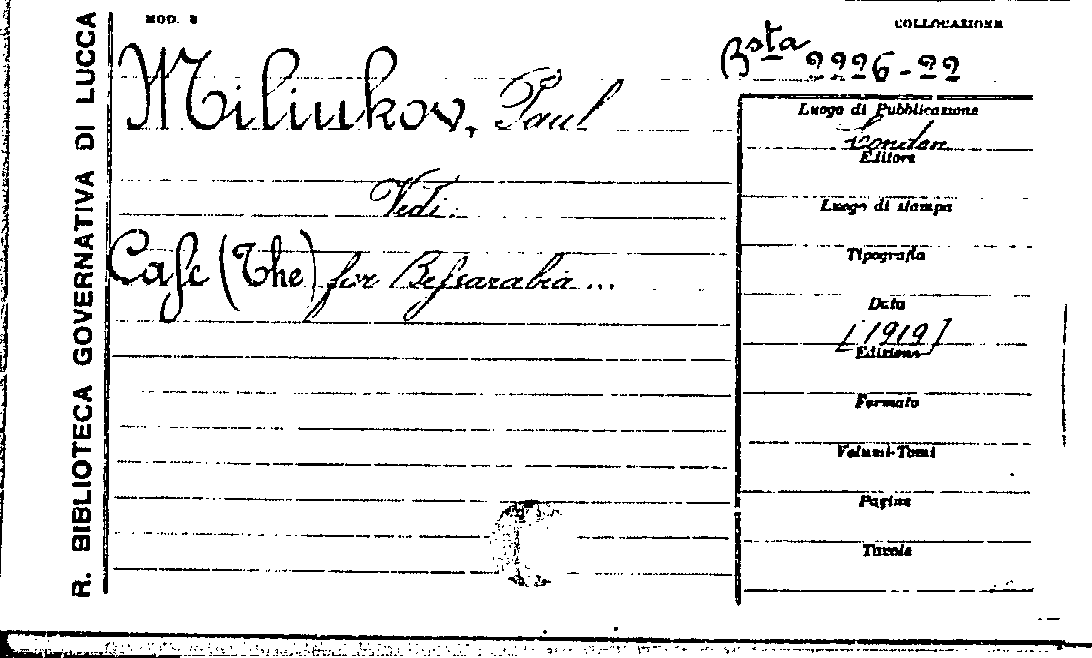 R. BIBLIOTECA GOVERNATIVA DI LUCCA
MOD. 8
COLLOCAZIONE
Bsta 2226-22
Miliukov, Paul
Vedi:
Case (The) for Bessarabia...
Luogo di Pubblicazione
London
Editore
Luogo di stampa
Tipografia
Data
[1919]
Edizione
Formato
Volumi-Tomi
Pagine
Tavole